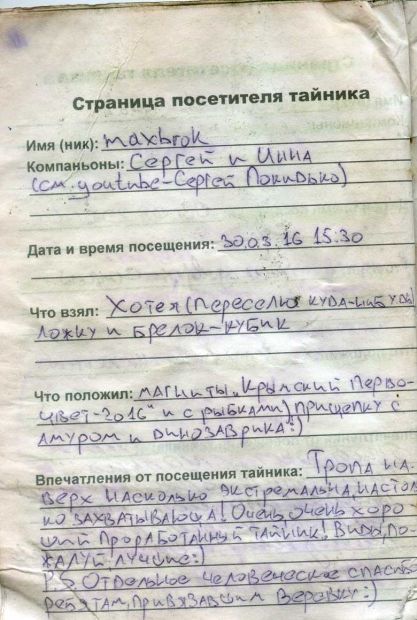 Страница посетителя тайника
Имя (ник): maxbrok
Компаньоны: Сергей и Инна
(см. youtube-Сергей Покидько)
Дата и время посещения: 30.03.16 15:30
Что взял: Хотея (переселю куда-нибудь)
ложку и брелок-кубик
Что положил: магниты „Крымский Перво-
цвет-2016" и с рыбками) прищепку с
амуром и динозаврика:)
Впечатления от посещения тайника: Тропа на-
верх насколько экстремальна, настол
ко захватывающа! Очень, очень хоро-
ший проработанный тайник! Виды, по-
жалуй, лучшие:)
P.S Отдельное человеческое спасибо
ребятам, привязавшим веревку:)